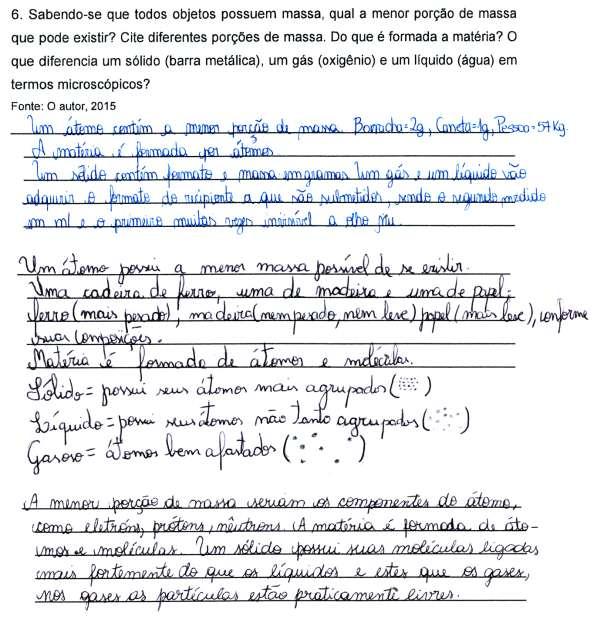 6. Sabendo-se que todos objetos possuem massa, qual a menor porção de massa
que pode existir? Cite diferentes porções de massa. Do que é formada a matéria? O
que diferencia um sólido (barra metálica), um gás (oxigênio) e um líquido (água) em
termos microscópicos?
Fonte: O autor, 2015
Um átomo contém a menor porção de massa. Borracha=2g, Caneta=1g, Pessoa=57Kg.
A matéria é formada por átomos
Um sólido contém formato e massa em gramas. Um gás e um líquido vão
adquirir o formato do recipiente a que são submetidos, sendo o segundo medido
em ml e o primeiro muitas vezes invisível a olho nu.
Um átomo possui a menor massa possível de se existir.
Uma cadeira de ferro, uma de madeira e uma de papel:
ferro (mais pesado), madeira (nem pesado, nem leve) papel (mais leve), conforme
suas composições.
Matéria é formada de átomos e moléculas.
Sólido = possui seus átomos mais agrupados ( )
Líquido = possui seus átomos não tanto agrupados ( )
Gasoso = átomos bem afastados ( )
A menor porção de massa seriam os componentes do átomo,
como eletróns, prótons, nêutrons. A matéria é formada de áto-
mos e moléculas. Um sólido possui suas moléculas ligadas
mais fortemente do que os líquidos e estes que os gases,
nos gases as partículas estão praticamente livres.